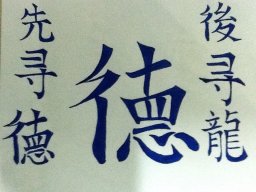 後尋龍
德
先尋德